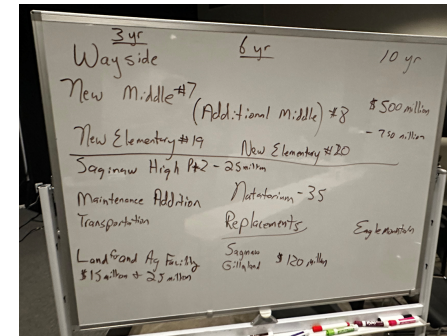 3 yr 6 yr 10 yr
Wayside
New Middle #7
(Additional Middle) #8 $500 million
- 750 million
New Elementary #19 New Elementary #20
Saginaw High Pt 2 - 25 million
Maintenance Addition Natatorium - 35
Transportation Replacements Eagle Mountain
Land and Ag Facility Saginaw
$15 million + 25 million Gililland $120 million